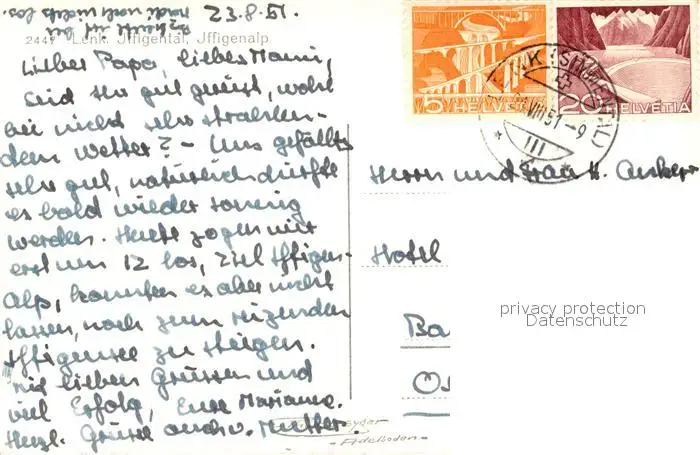 23.8.51.
2447 Lenk. Jffigental, Jffigenalp.
Lieber Papa, liebes Mami,
Seid Ihr gut gereist, wohl
bei nicht sehr strahlen-
dem Wetter? – Uns gefällts
sehr gut, natürlich dürfte
es bald wieder sonnig
werden. Heute zogen wir
erst um 12 los, Ziel Iffigen-
alp, konnten es aber nicht
lassen, noch zum reizenden
Iffigensee zu steigen.
Mit lieben Grüssen und
viel Erfolg, Eure Marianne.
Herzl. Grüsse auch v. Mutter.
- Adelboden -
5 HELVETIA
20 HELVETIA
LENK (SIMMENTAL)
VIII 51 – 9
III
Herrn und Frau
Hotel
Ba
privacy protection
Datenschutz